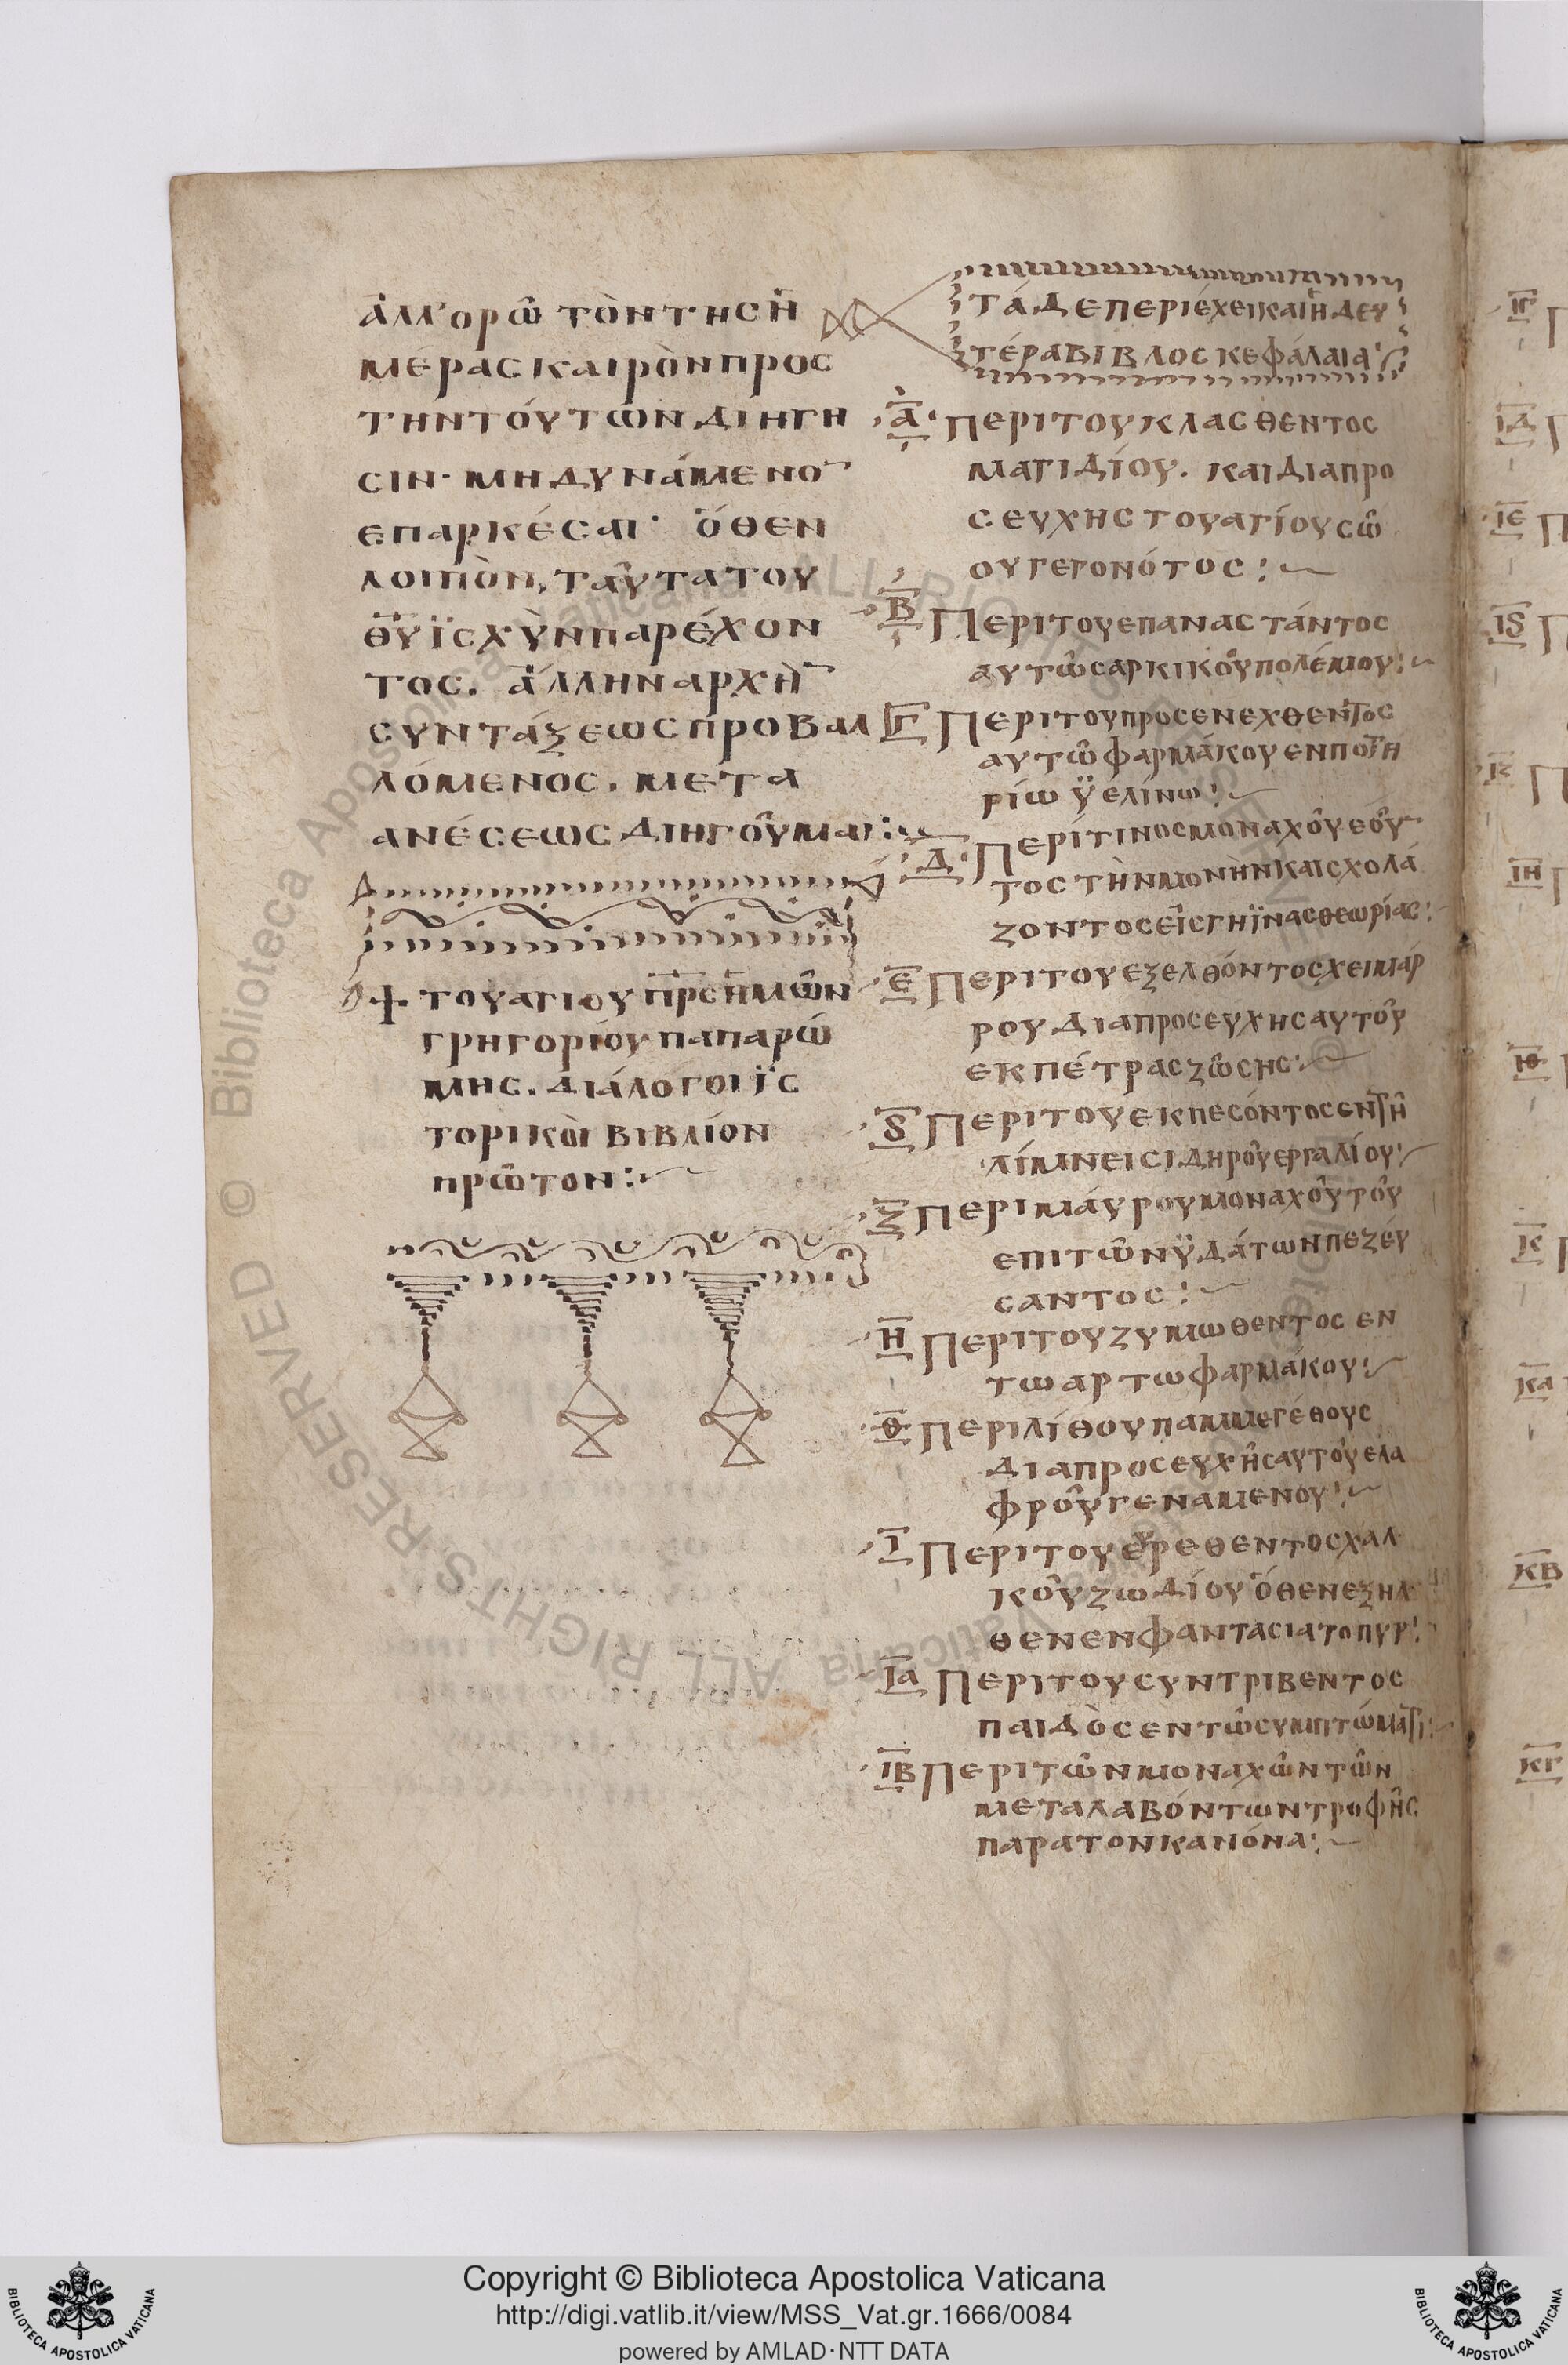 ἀλλ' ορῶ τὸν τῆς ἡ
μέρας καιρὸν προς
τὴν τόυτων διηγη
σιν· μὴ δυνάμενο
επαρκέσαι· ὅθεν
λοιπὸν, ταῦτα του
θ̅υ̅ ϊσχὺν παρέχον
τος. ἄλλην αρχὴ
συντάξεως προβαλ
λόμενος. μετα
ανέσεως διηγοῦμαι:
☩ του αγιου π̅ρ̅ς̅ ἡμῶν
γρηγορίου παπα ρώ
μης. διάλογοι ϊς
τορικὸι βιβλίον
πρῶτον:
Τάδε περιέχει καὶ ἡ δευ
τέρα βιβλος κεφάλαια:
Α̅ Περι του κλασθεντος
μαγιδίου. και δια προ
σευχης του αγίου σῶ
ου γεγονότος:
Β̅ Περι του επαναστάντος
αυτῶ σαρκικοῦ πολέμου:
Γ̅ Περι του προσενεχθεντος
αυτῶ φαρμάκου εν ποτη
ρίω ϋελίνω:
Δ̅ Περί τινος μοναχοῦ εοῦ
τος τὴν μονὴν και σχολά
ζοντος εἰς γηϊνας θεωρίας:
Ε̅ Περι του εξελθόντος χειμάρ
ρου δια προσευχης αυτοῦ
εκ πέτρας ζώσης:
Ϛ̅ Περι του εκπεσόντος εν τῆ
λίμνει σιδηροῦ εργαλίου:
Ζ̅ Περι μάυρου μοναχοῦ τοῦ
επι τῶν ϋδάτων πεζέυ
σαντος:
Η̅ Περι του ζυμωθεντος εν
τω αρτω φαρμάκου:
Θ̅ Περι λίθου παμμεγέθους
δια προσευχῆς αυτοῦ ελα
φροῦ γεναμενου:
Ι̅ Περι του ευρεθεντος χαλ
κοῦ ζωδίου ὅθεν εξηλ
θεν εν φαντασια το πυρ:
Ι̅Α̅ Περι του συντριβεντος
παιδὸς εν τῶ συμπτώματι:
Ι̅Β̅ Περι τῶν μοναχῶν τῶν
μεταλαβόντων τροφῆς
παρα τον κανόνα:
Ι̅Γ̅
Ι̅Δ̅
Ι̅Ε̅
Ι̅Ϛ̅
Ι̅Ζ̅
Ι̅Η̅
Ι̅Θ̅
Κ̅
Κ̅Α̅
Κ̅Β̅
Κ̅Γ̅
© Biblioteca Apostolica Vaticana ALL RIGHTS RESERVED
Copyright © Biblioteca Apostolica Vaticana
http://digi.vatlib.it/view/MSS_Vat.gr.1666/0084
powered by AMLAD·NTT DATA
BIBLIOTECA APOSTOLICA VATICANA
BIBLIOTECA APOSTOLICA VATICANA